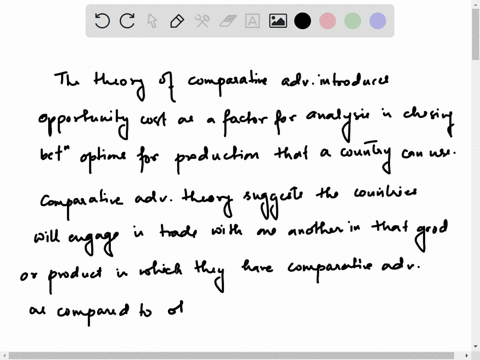 The theory of comparative adv. introduces
opportunity cost as a factor for analysis in chosing
betⁿ options for production that a country can use.
Comparative adv. theory suggests the countries
will engage in trade with one another in that good
or product in which they have comparative adv.
as compared to ot